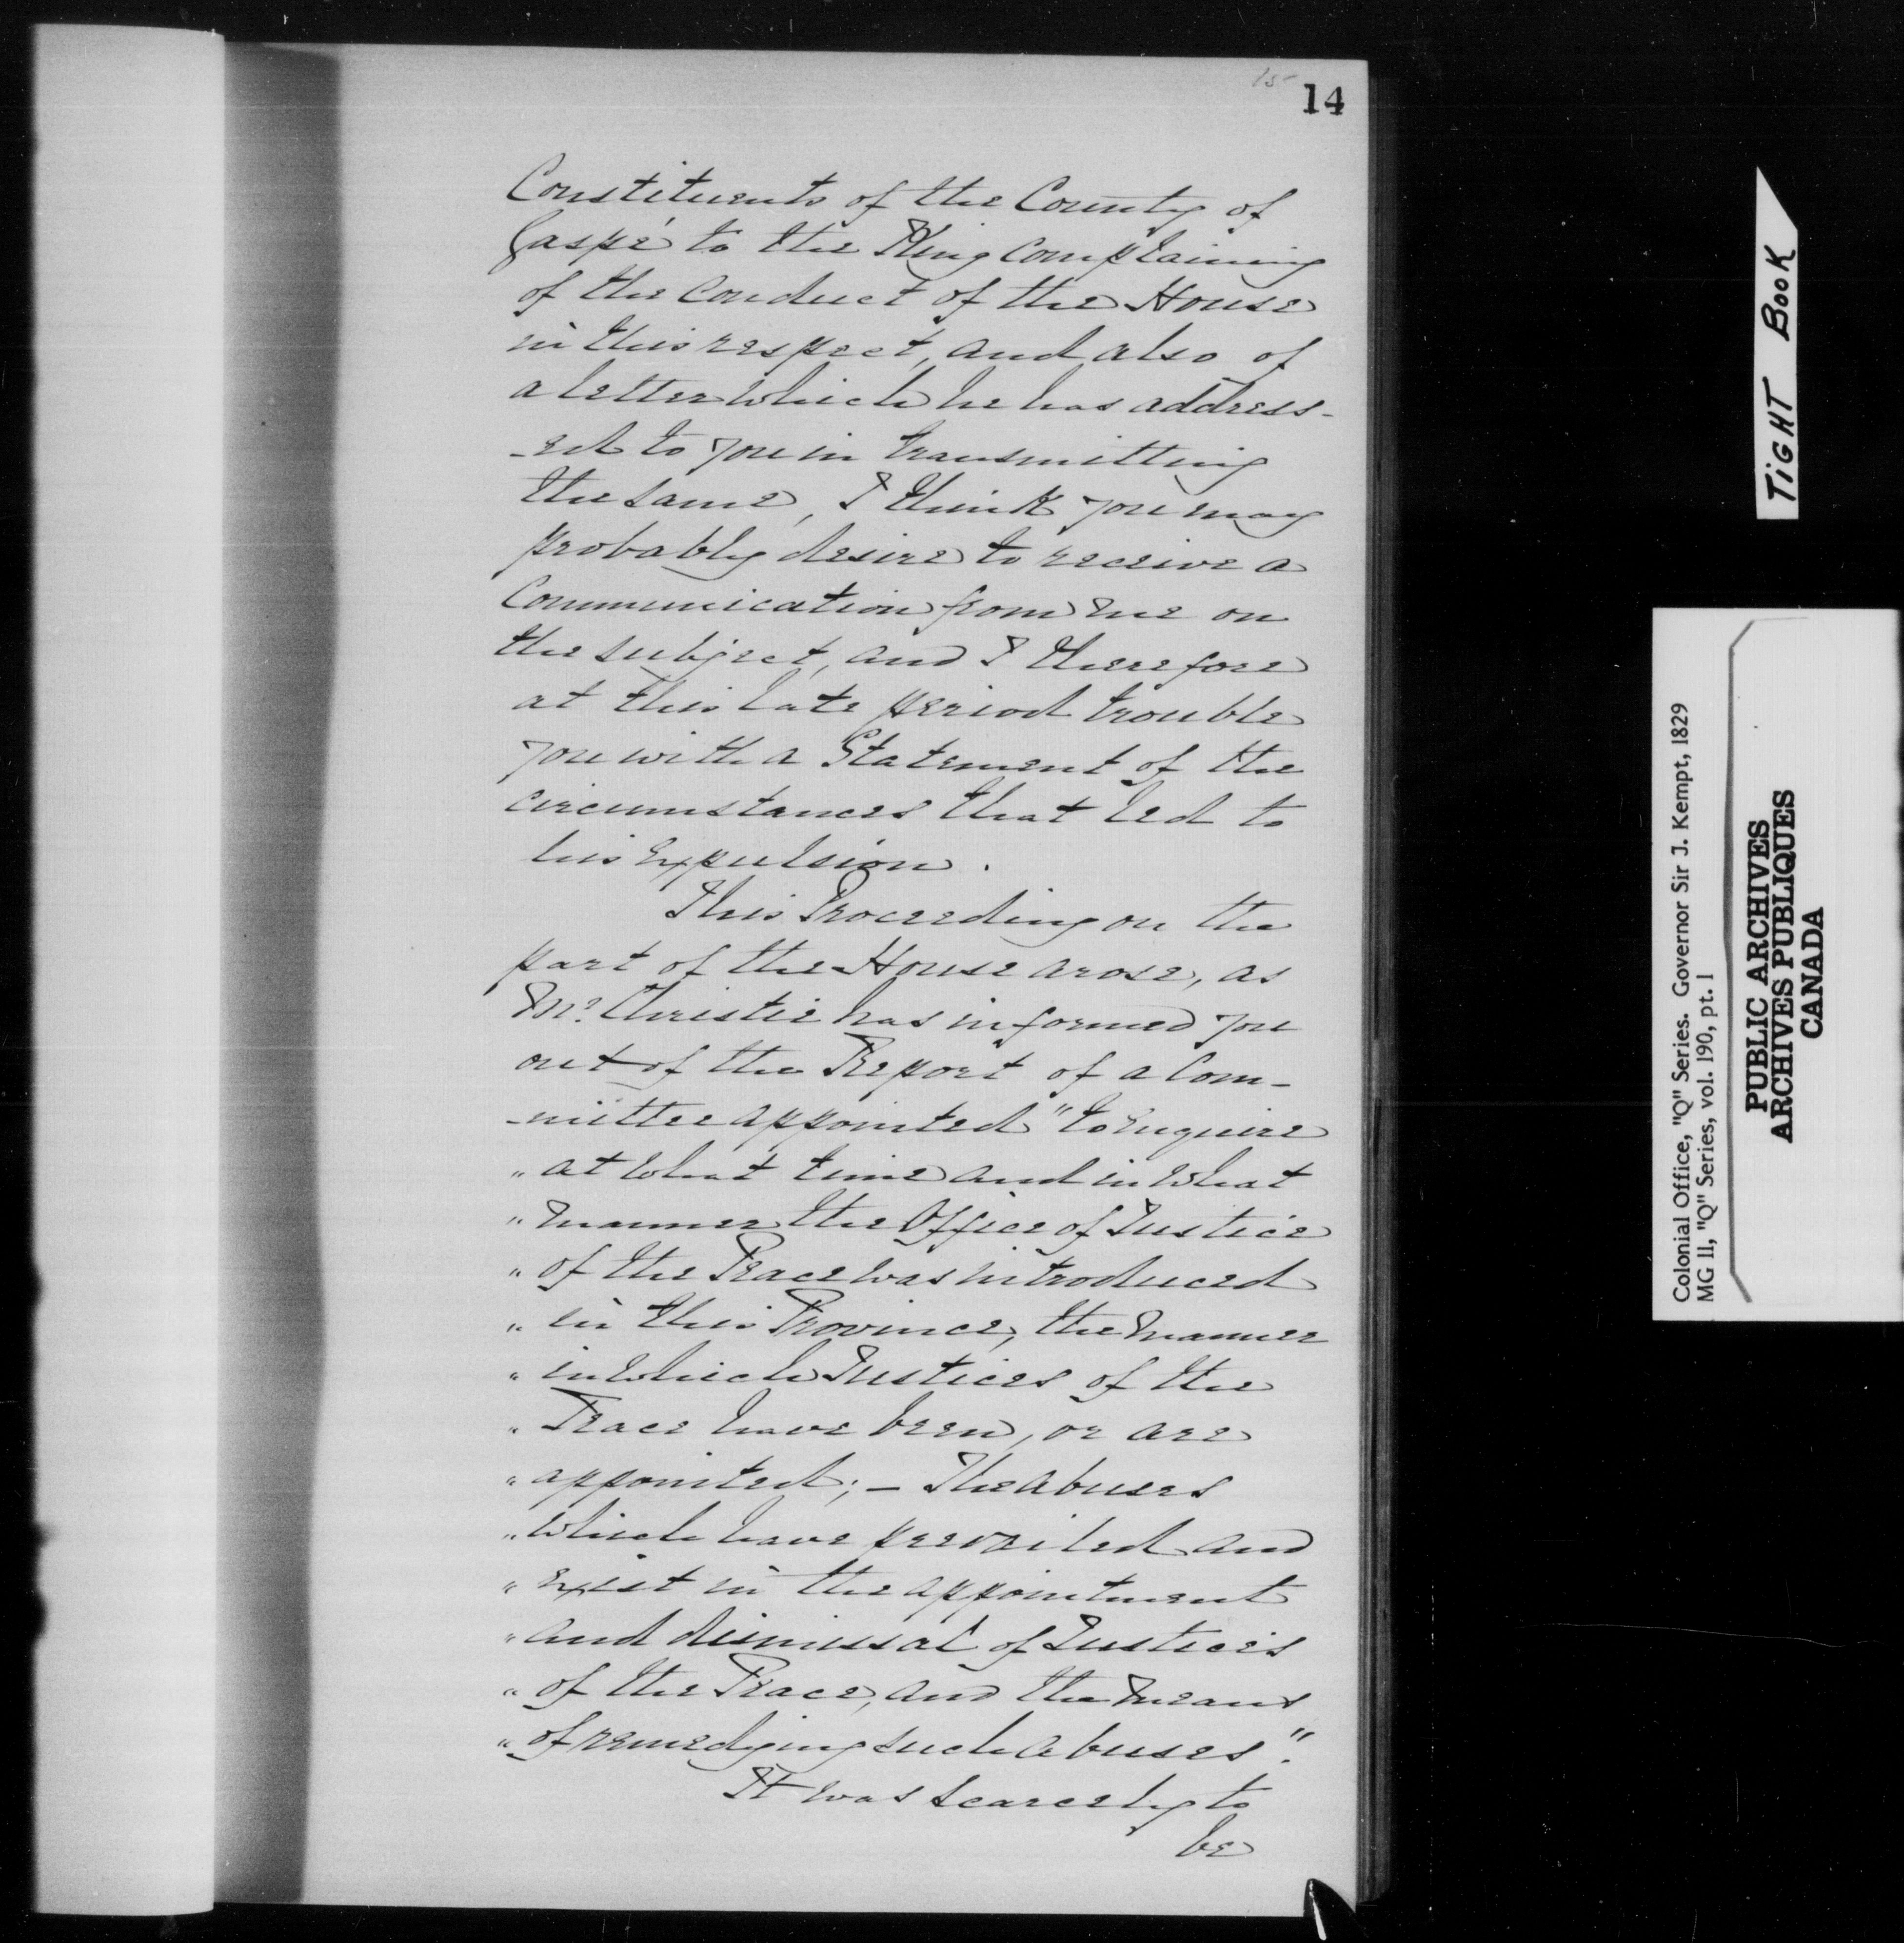 15
14
Constituents of the County of
Gaspé to the King complaining
of the conduct of the House
in this respect, and also of
a letter which he has address-
-ed to you in transmitting
the same, I think you may
probably desire to receive a
Communication from me on
the subject, and I therefore
at this late period trouble
you with a Statement of the
circumstances that led to
his Expulsion.
This Proceeding on the
part of the House arose, as
Mr. Christie has informed you
out of the Report of a Com-
-mittee appointed "to Enquire
" at what time and in what
" manner the Office of Justice
" of the Peace was introduced
" in this Province, the manner
" in which Justices of the
" Peace have been, or are
" appointed; — The abuses
" which have prevailed and
" exist in the appointment
" and dismissal of Justices
" of the Peace, and the means
" of remedying such abuses".
It was scarcely to
be
TIGHT BOOK
Colonial Office, "Q" Series. Governor Sir J. Kempt, 1829
MG 11, "Q" Series, vol. 190, pt. 1
PUBLIC ARCHIVES
ARCHIVES PUBLIQUES
CANADA